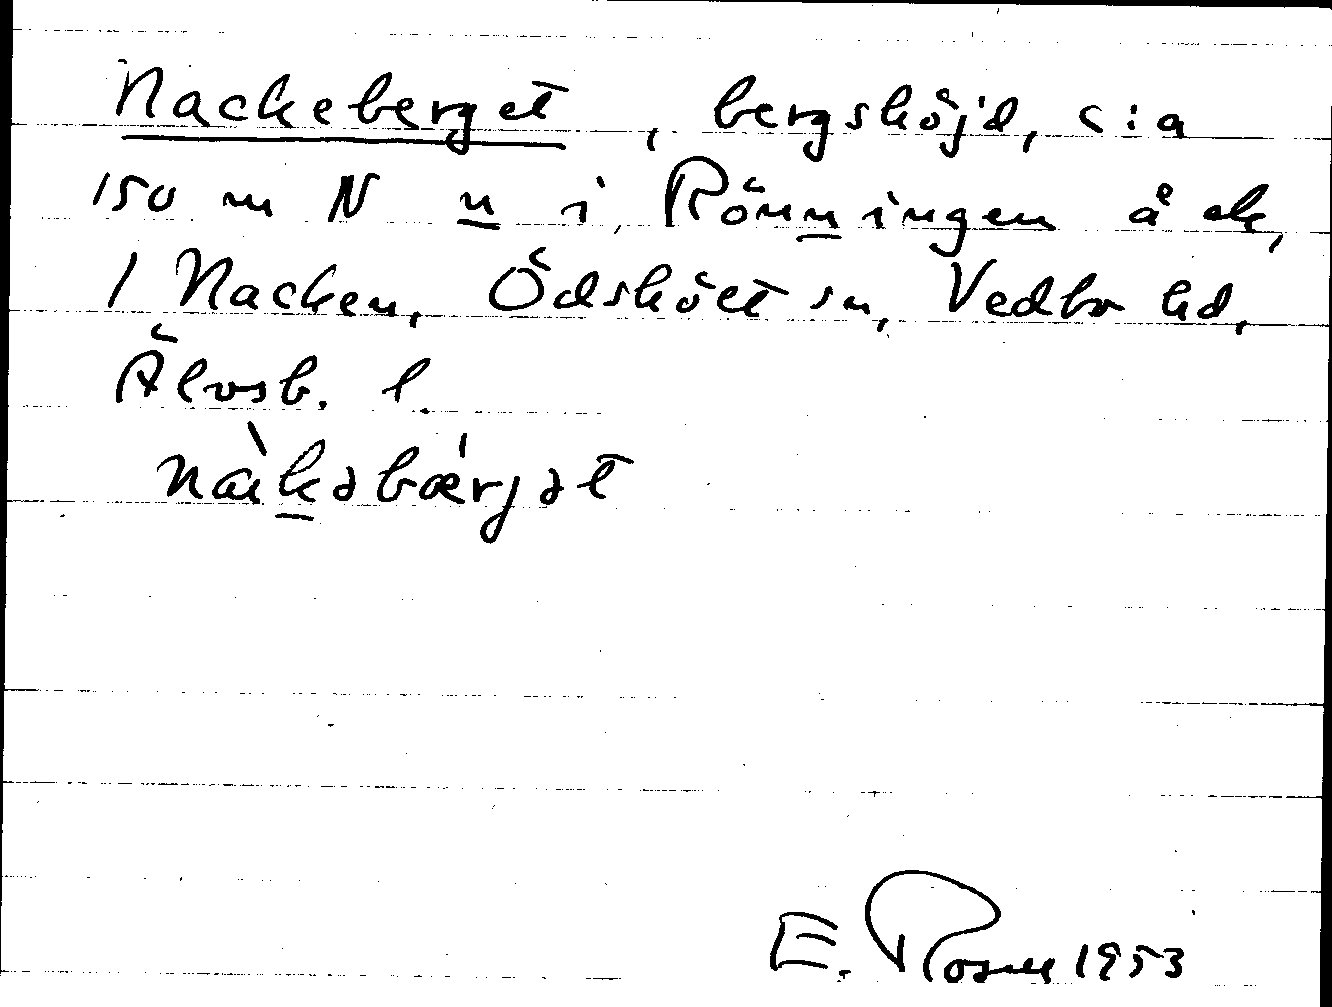 Nackeberget, bergshöjd, c:a
150 m N n i Rönningen å ek,
1 Nacken, Ödskölt sn, Vedbo hd,
Älvsb. l.
nàkəbǽrjət
E. 1953